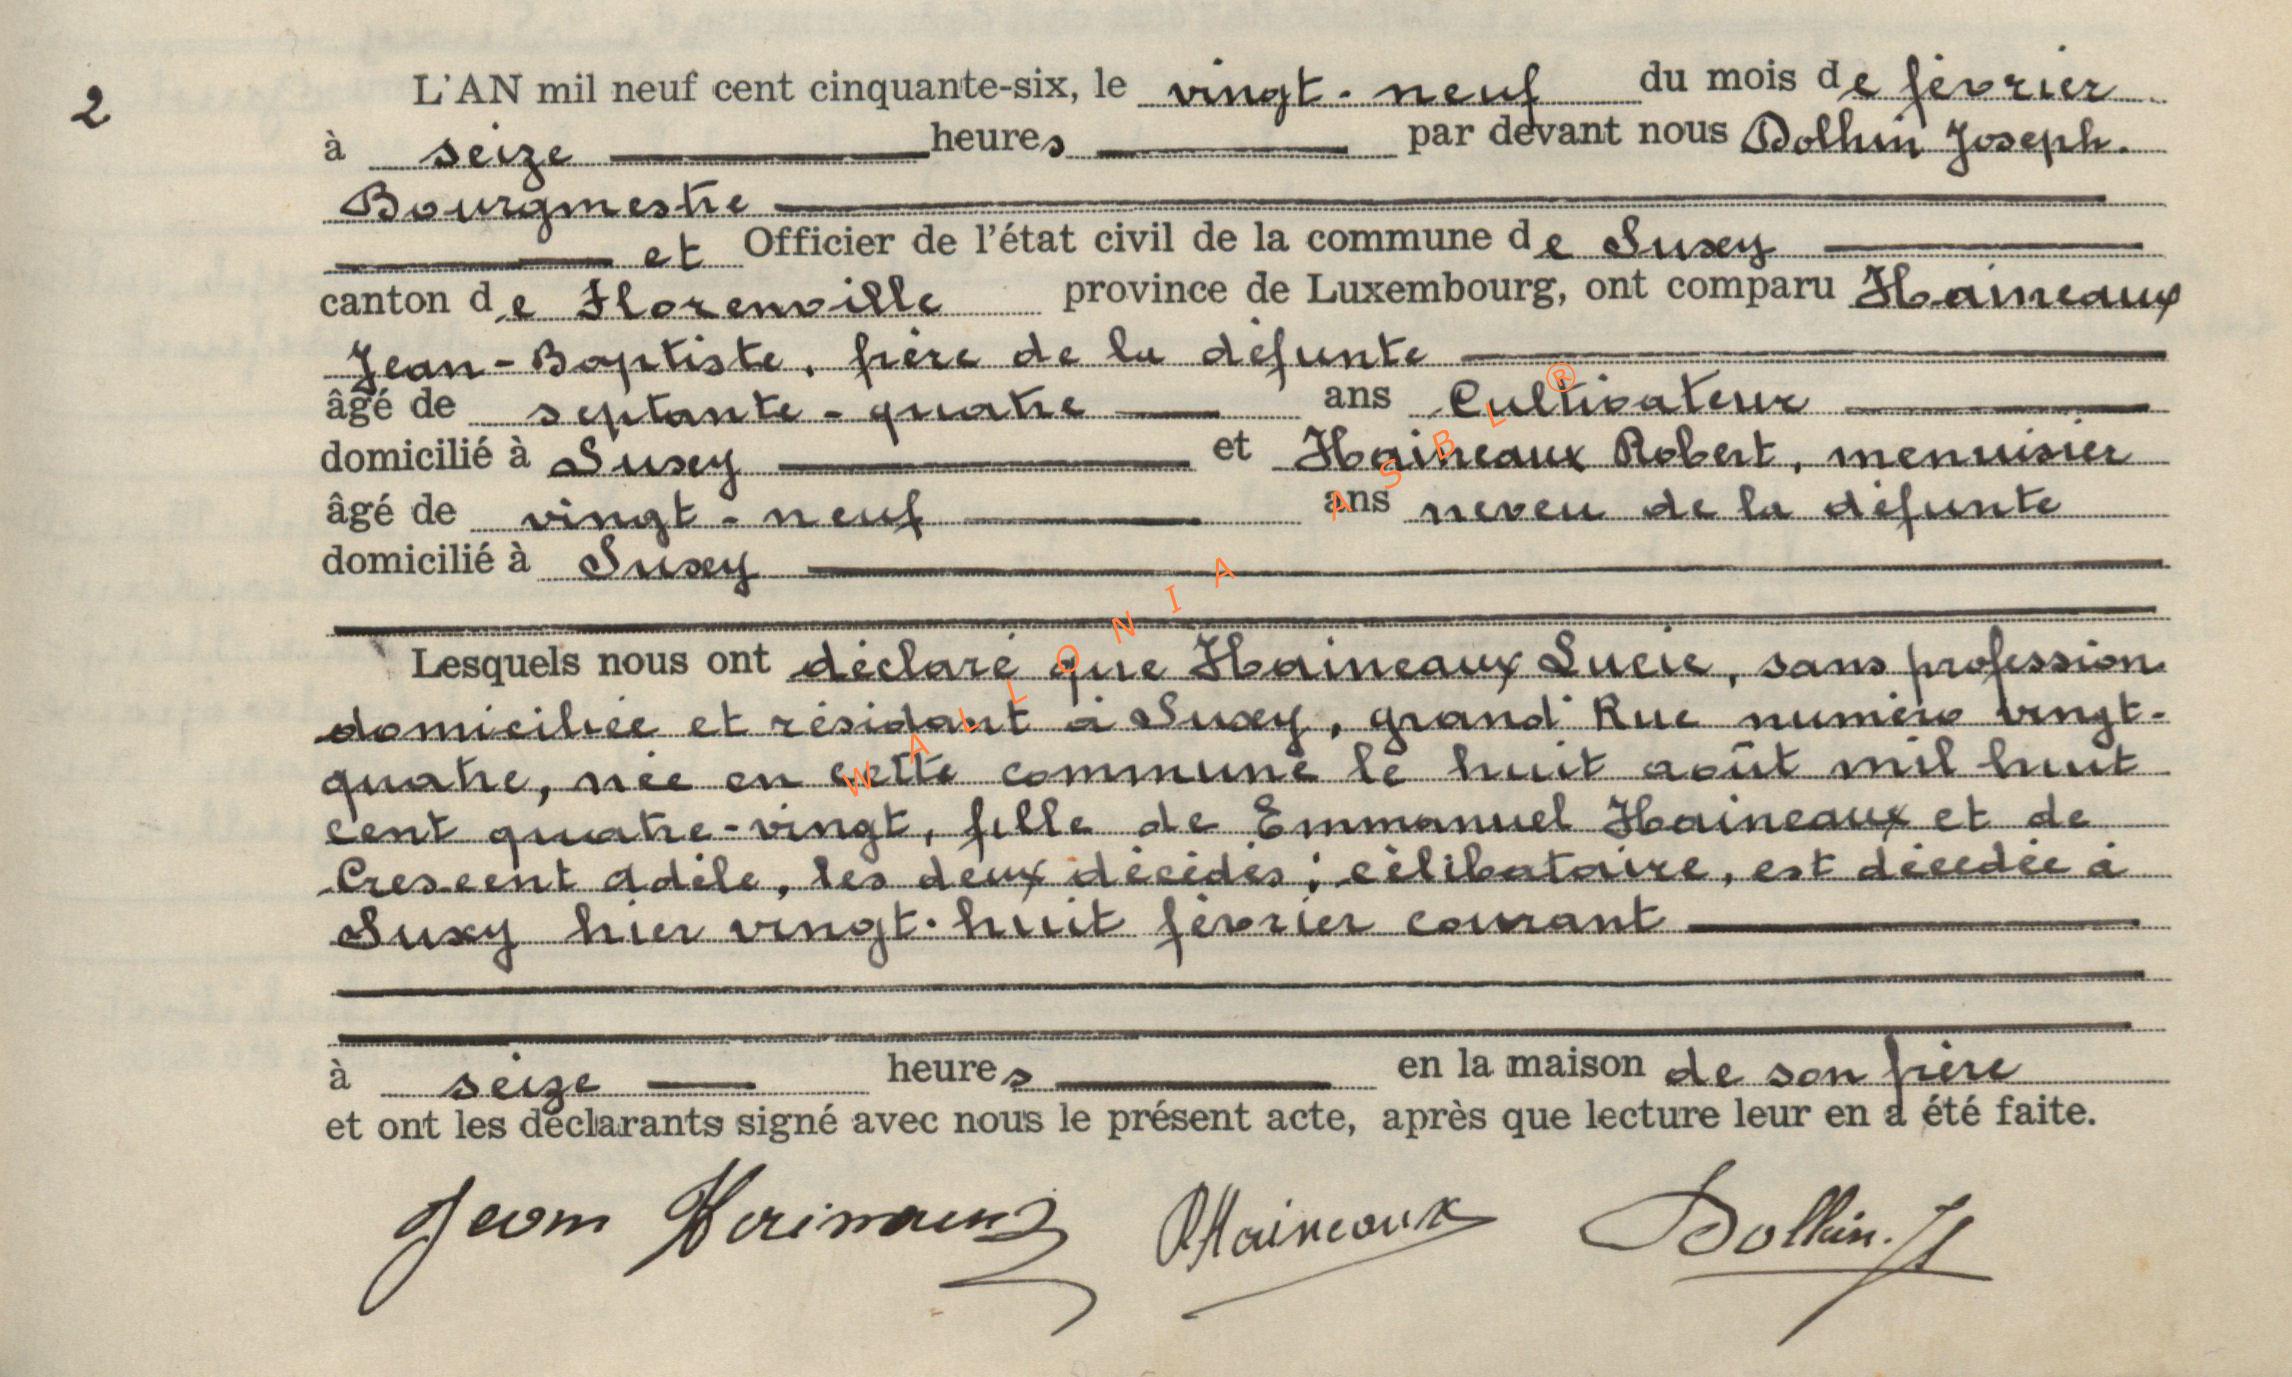 2
L'AN mil neuf cent cinquante-six, le vingt-neuf du mois de février
à seize heures par devant nous Dolhin Joseph.
Bourgmestre
et Officier de l'état civil de la commune de Suxy
canton de Florenville province de Luxembourg, ont comparu Haineaux
Jean-Baptiste, frère de la défunte
âgé de septante-quatre ans Cultivateur
domicilié à Suxy et Haineaux Robert, menuisier
âgé de vingt-neuf ans neveu de la défunte
domicilié à Suxy
Lesquels nous ont déclaré que Haineaux Lucie, sans profession
domiciliée et résidant à Suxy, grand'Rue numéro vingt-
quatre, née en cette commune le huit août mil huit
cent quatre-vingt, fille de Emmanuel Haineaux et de
Crescent Adèle, les deux décédés ; célibataire, est décédée à
Suxy hier vingt-huit février courant
à seize heures en la maison de son frère
et ont les déclarants signé avec nous le présent acte, après que lecture leur en a été faite.
Jean Haineaux RHaineaux Dolhin. J
WALLONIA ASBL ®